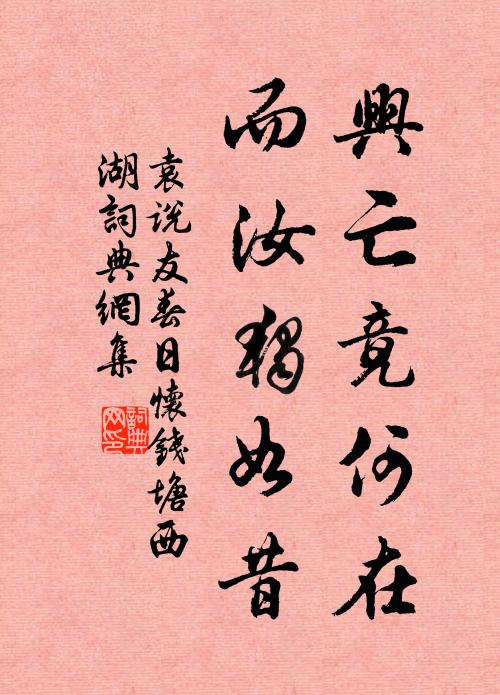 興亡竟何在
而汝獨如昔
袁说友春日懷錢塘西
湖詞典網集
詞典网印